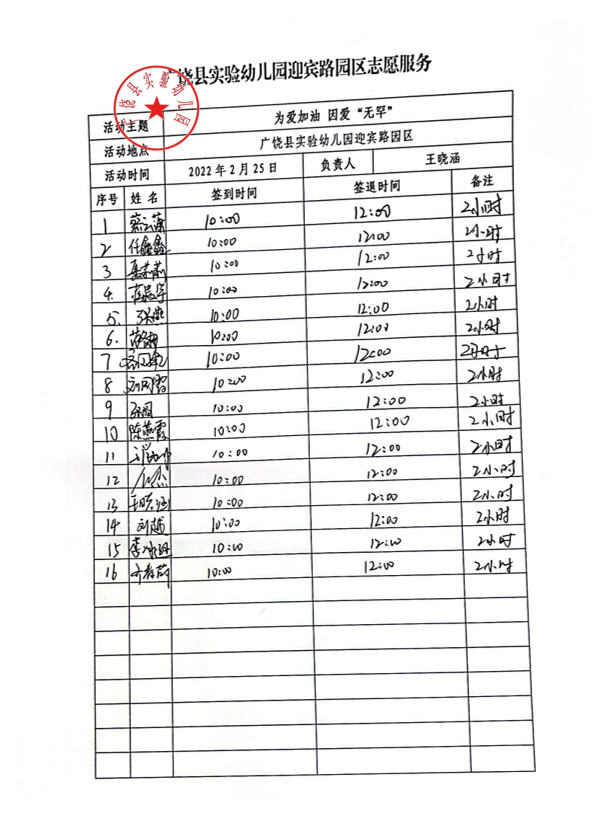 广饶县实验幼儿园迎宾路园区志愿服务
广饶县实验幼儿园
活动主题 为爱加油 因爱“无罕”
活动地点 广饶县实验幼儿园迎宾路园区
活动时间 2022年2月25日 负责人 王晓涵
序号 姓名 签到时间 签退时间 备注
1 10:00 12:00 2小时
2 任鑫鑫 10:00 12:00 2小时
3 10:00 12:00 2小时
4. 10:00 12:00 2小时
5. 张燕 10:00 12:00 2小时
6. 10:00 12:00 2小时
7 10:00 12:00 2小时
8 10:00 12:00 2小时
9 10:00 12:00 2小时
10 陈燕霞 10:00 12:00 2小时
11 10:00 12:00 2小时
12 10:00 12:00 2小时
13 王晓涵 10:00 12:00 2小时
14 刘越 10:00 12:00 2小时
15 10:00 12:00 2小时
16 10:00 12:00 2小时